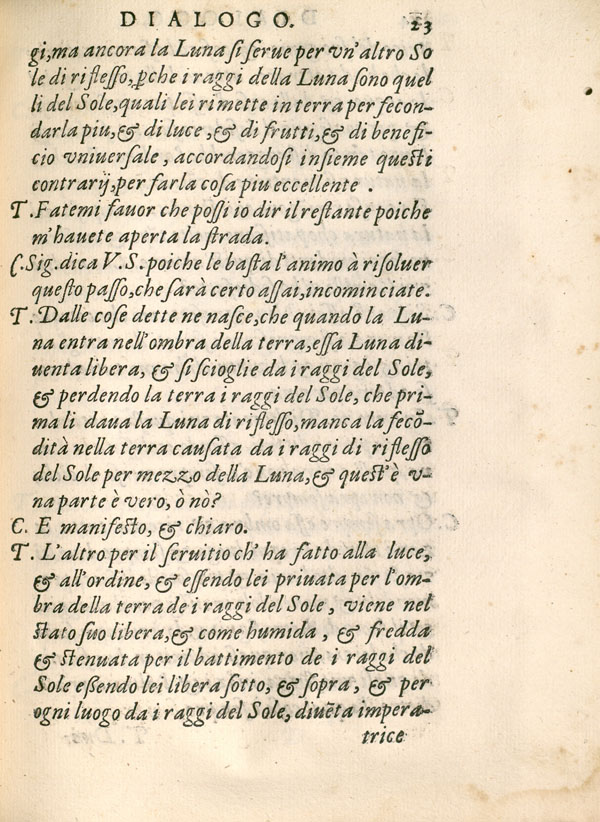 DIALOGO. 23
gi,ma ancora la Luna si serue per vn'altro So
le di riflesso, ꝑche i raggi della Luna sono quel
li del Sole, quali lei rimette in terra per fecon-
darla piu, & di luce, & di frutti, & di benefi-
cio vniuersale, accordandosi insieme questi
contrarij, per farla cosa piu eccellente.
T. Fatemi fauor che possi io dir il restante poiche
m'hauete aperta la strada.
C. Sig. dica V.S. poiche le basta l'animo à risoluer
questo passo, che sarà certo assai, incominciate.
T. Dalle cose dette ne nasce, che quando la Lu-
na entra nell'ombra della terra, essa Luna di-
uenta libera, & si scioglie da i raggi del Sole,
& perdendo la terra i raggi del Sole, che pri-
ma li daua la Luna di riflesso, manca la fecō-
dità nella terra causata da i raggi di riflesso
del Sole per mezzo della Luna, & quest'è v-
na parte è vero, ò nò?
C. E manifesto, & chiaro.
T. L'altro per il seruitio ch'ha fatto alla luce,
& all'ordine, & essendo lei priuata per l'om-
bra della terra de i raggi del Sole, viene nel
stato suo libera, & come humida, & fredda
& stenuata per il battimento de i raggi del
Sole essendo lei libera sotto, & sopra, & per
ogni luogo da i raggi del Sole, diuēta impera-
trice